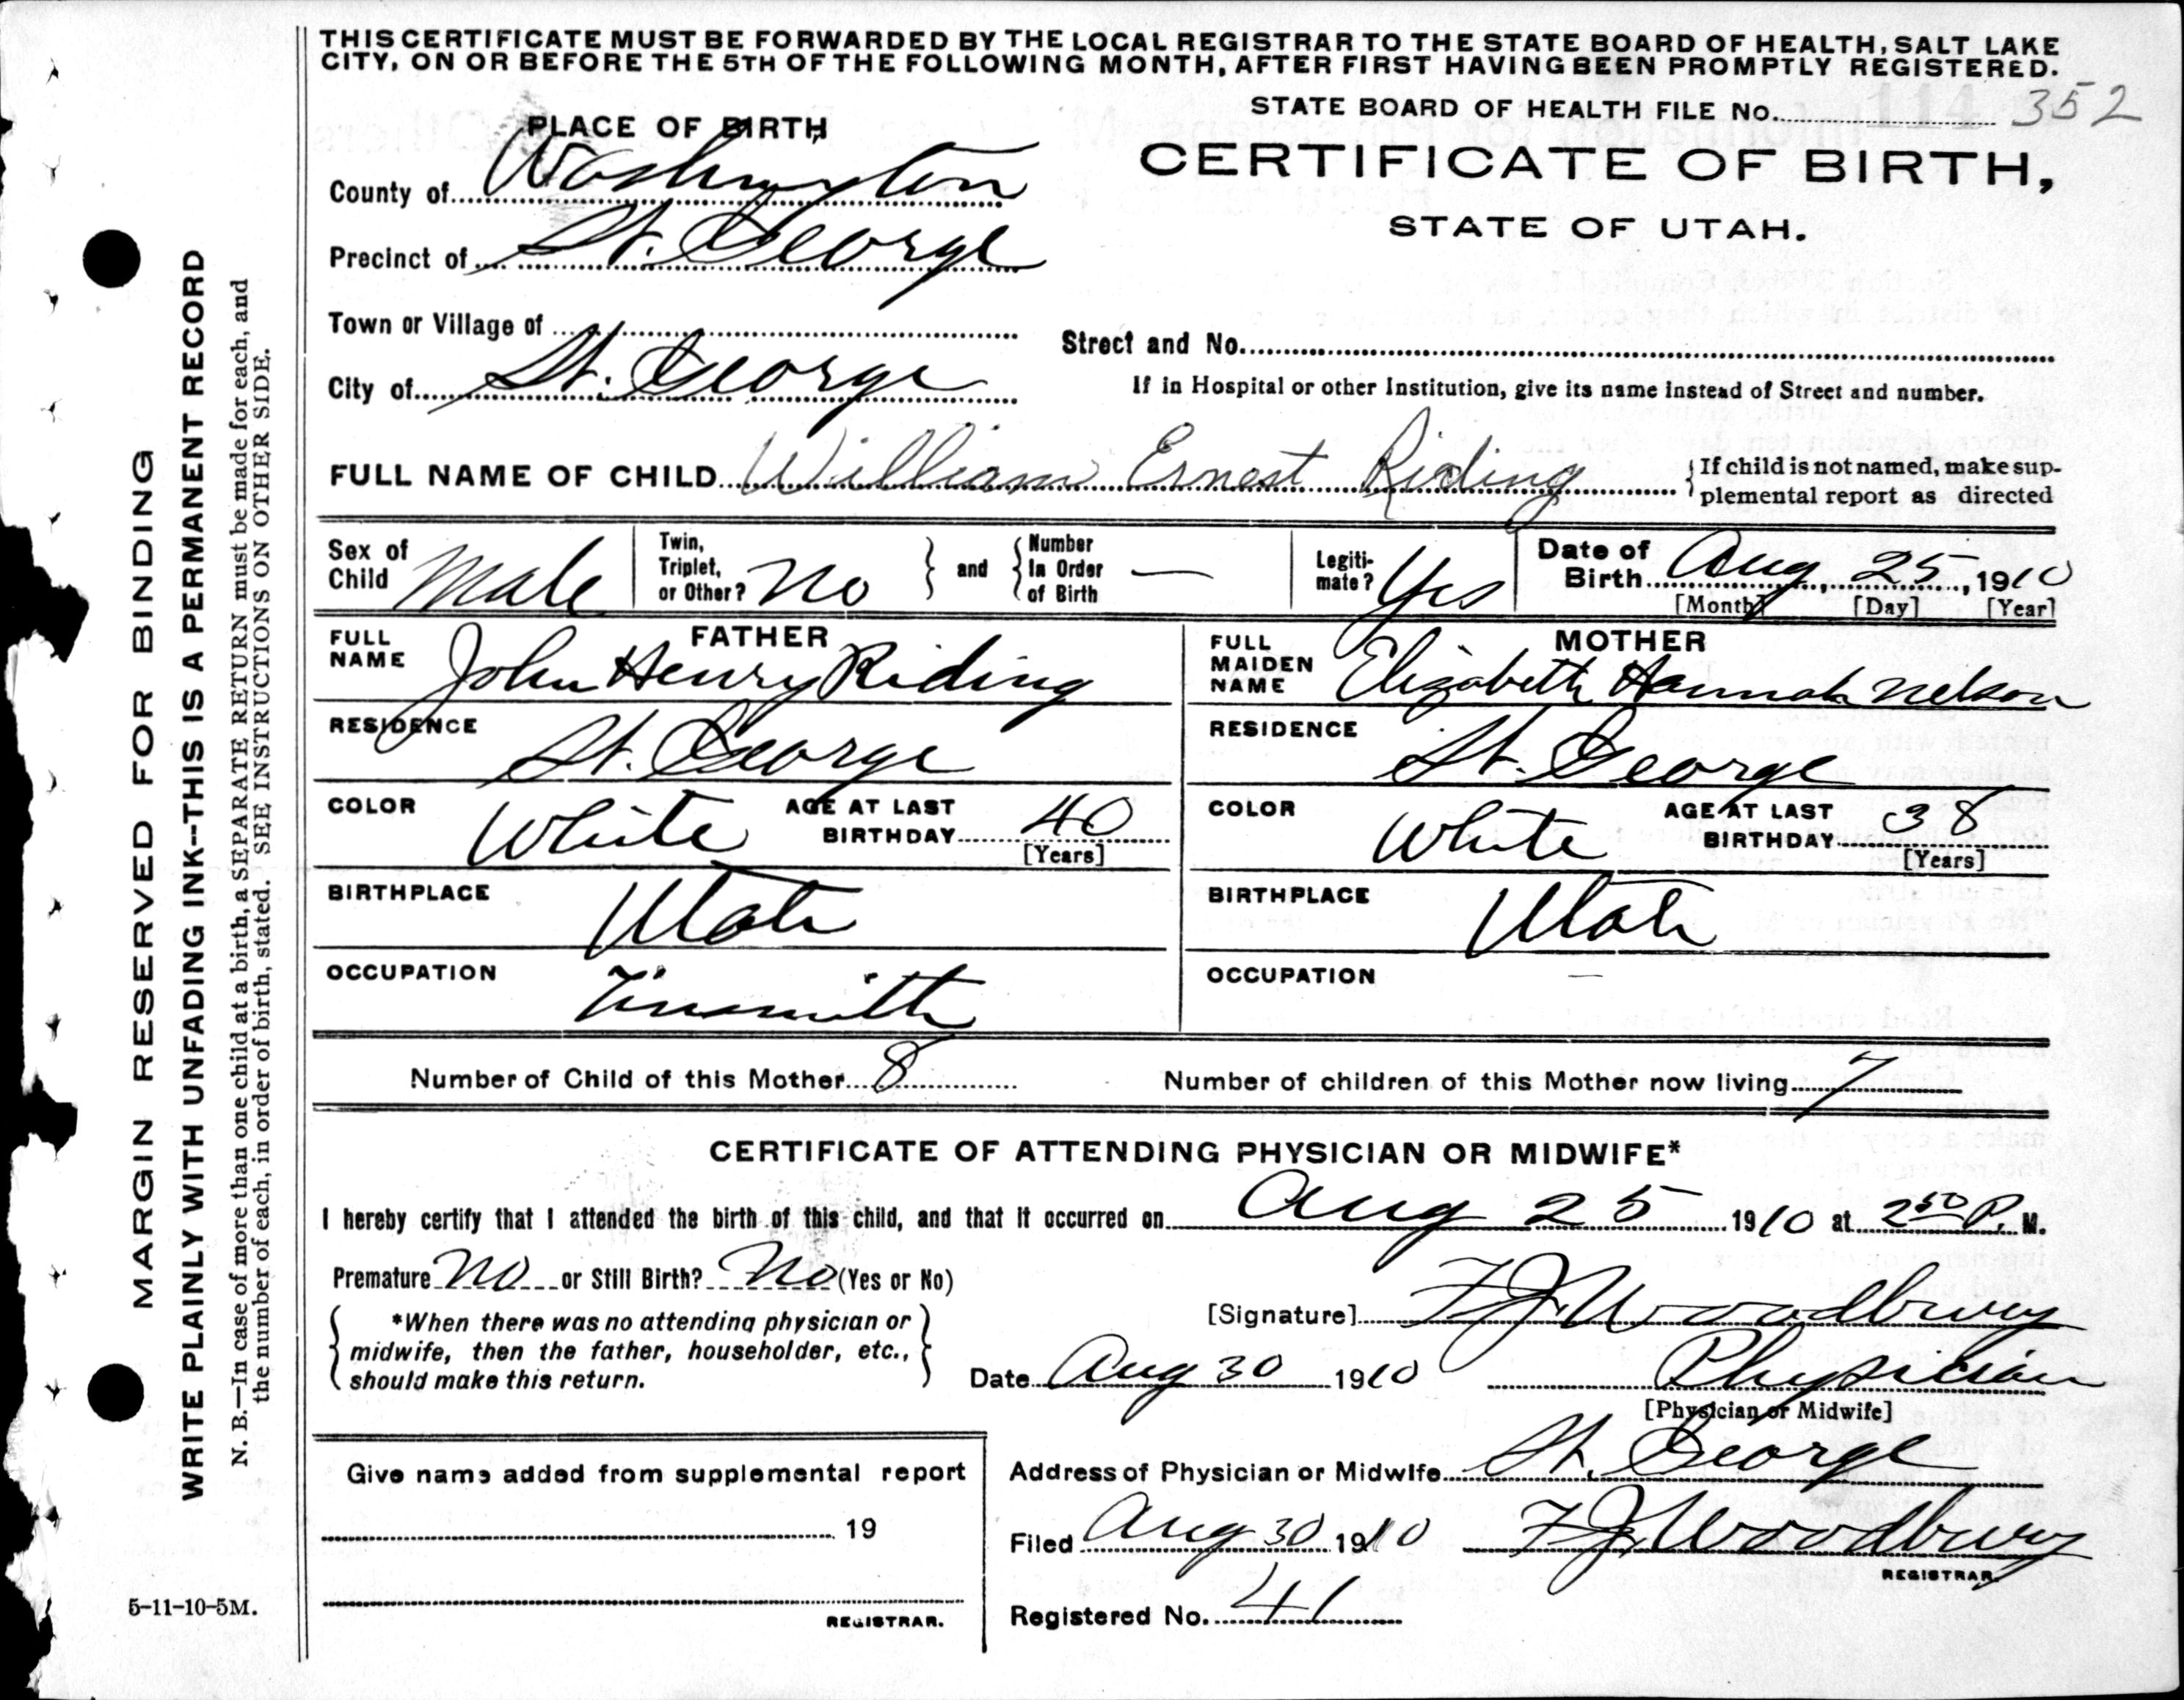 THIS CERTIFICATE MUST BE FORWARDED BY THE LOCAL REGISTRAR TO THE STATE BOARD OF HEALTH, SALT LAKE
CITY, ON OR BEFORE THE 5TH OF THE FOLLOWING MONTH, AFTER FIRST HAVING BEEN PROMPTLY REGISTERED.
STATE BOARD OF HEALTH FILE No. 114 352
CERTIFICATE OF BIRTH,
STATE OF UTAH.
PLACE OF BIRTH
County of Washington
Precinct of St. George
Town or Village of
City of St. George
Street and No.
If in Hospital or other Institution, give its name instead of Street and number.
FULL NAME OF CHILD William Ernest Riding { If child is not named, make sup-
plemental report as directed
Sex of
Child Male
Twin,
Triplet,
or Other? No } and { Number
In Order
of Birth —
Legiti-
mate? Yes
Date of
Birth Aug, 25, 1910
[Month] [Day] [Year]
FATHER
FULL
NAME John Henry Riding
RESIDENCE St. George
COLOR White AGE AT LAST
BIRTHDAY 40
[Years]
BIRTHPLACE Utah
OCCUPATION Tinsmith
MOTHER
FULL
MAIDEN
NAME Elizabeth Hannah Nelson
RESIDENCE St. George
COLOR White AGE AT LAST
BIRTHDAY 38
[Years]
BIRTHPLACE Utah
OCCUPATION —
Number of Child of this Mother 8 Number of children of this Mother now living 7
CERTIFICATE OF ATTENDING PHYSICIAN OR MIDWIFE*
I hereby certify that I attended the birth of this child, and that it occurred on Aug 25 1910 at 2 50 P. M.
Premature No or Still Birth? No (Yes or No)
{ *When there was no attending physician or
midwife, then the father, householder, etc.,
should make this return. }
[Signature] F J Woodbury
Date Aug 30 1910 Physician
[Physician or Midwife]
Give name added from supplemental report
19
REGISTRAR.
Address of Physician or Midwife St. George
Filed Aug 30 1910 F J Woodbury
REGISTRAR.
Registered No. 41
MARGIN RESERVED FOR BINDING
WRITE PLAINLY WITH UNFADING INK--THIS IS A PERMANENT RECORD
N. B.—In case of more than one child at a birth, a SEPARATE RETURN must be made for each, and
the number of each, in order of birth, stated. SEE INSTRUCTIONS ON OTHER SIDE.
5-11-10-5M.